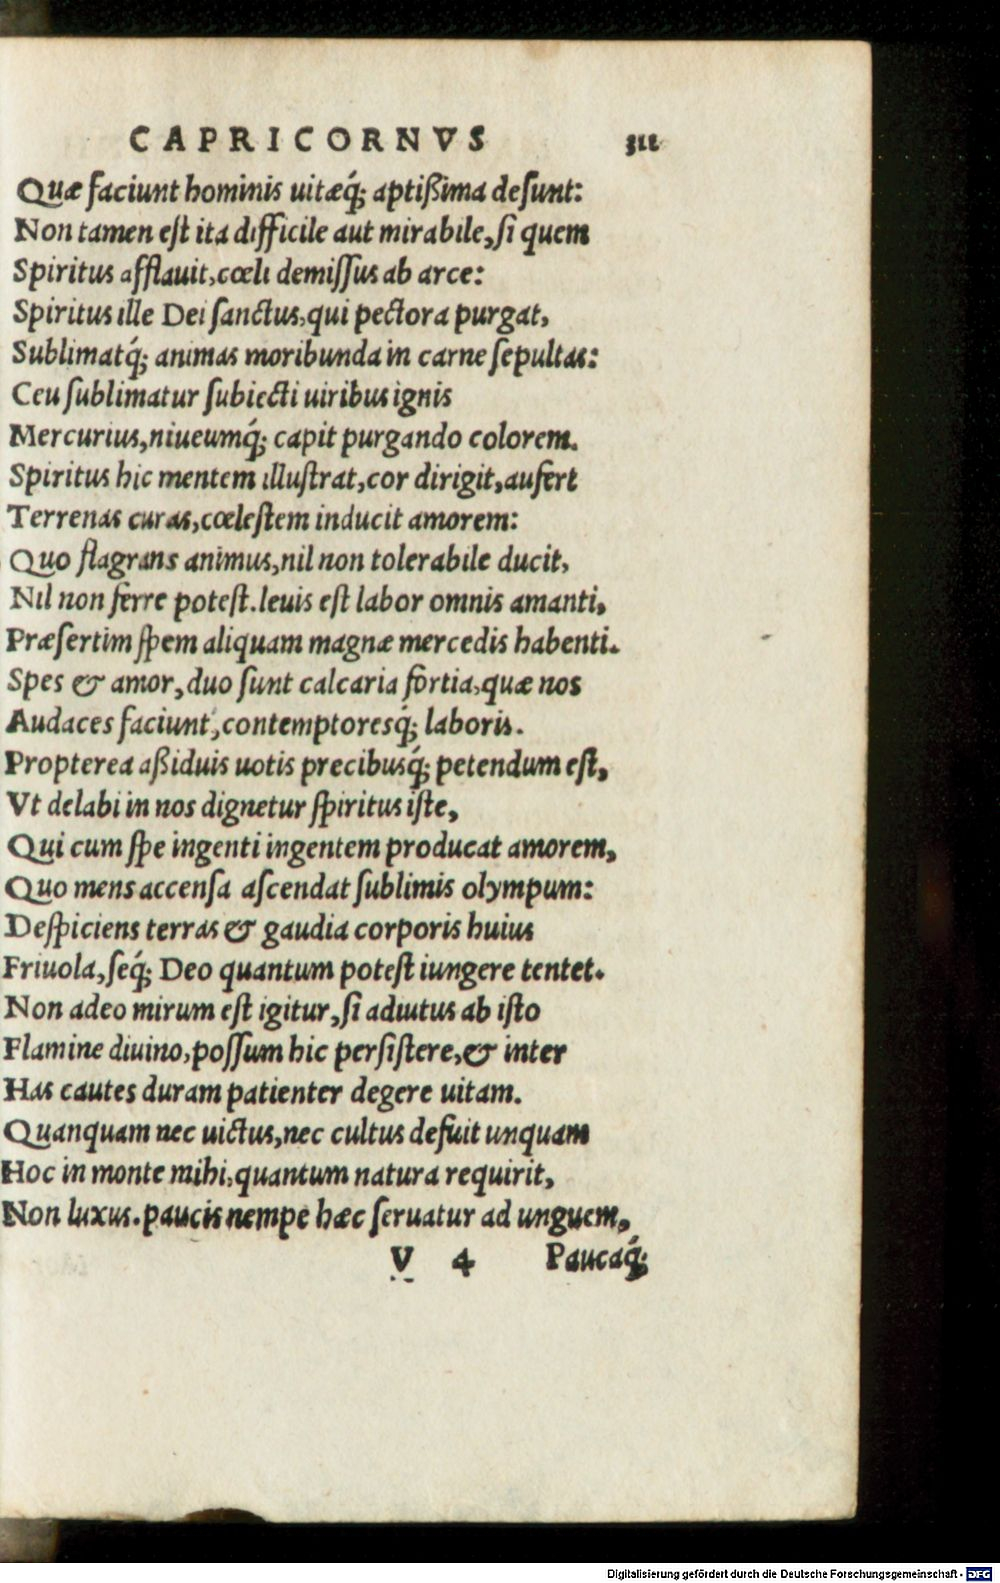 CAPRICORNVS 311
Quæ faciunt hominis uitæq́; aptißima desunt:
Non tamen est ita difficile aut mirabile, si quem
Spiritus afflauit, cœli demissus ab arce:
Spiritus ille Dei sanctus, qui pectora purgat,
Sublimatq́; animas moribunda in carne sepultas:
Ceu sublimatur subiecti uiribus ignis
Mercurius, niueumq́; capit purgando colorem.
Spiritus hic mentem illustrat, cor dirigit, aufert
Terrenas curas, cœlestem inducit amorem:
Quo flagrans animus, nil non tolerabile ducit,
Nil non ferre potest. leuis est labor omnis amanti,
Præsertim spem aliquam magnæ mercedis habenti.
Spes & amor, duo sunt calcaria fortia, quæ nos
Audaces faciunt, contemptoresq́; laboris.
Propterea aßiduis uotis precibusq́; petendum est,
Vt delabi in nos dignetur spiritus iste,
Qui cum spe ingenti ingentem producat amorem,
Quo mens accensa ascendat sublimis olympum:
Despiciens terras & gaudia corporis huius
Friuola, seq́; Deo quantum potest iungere tentet.
Non adeo mirum est igitur, si adiutus ab isto
Flamine diuino, possum hic persistere, & inter
Has cautes duram patienter degere uitam.
Quanquam nec uictus, nec cultus defuit unquam
Hoc in monte mihi, quantum natura requirit,
Non luxus. paucis nempe hæc seruatur ad unguem,
V 4 Paucaq́;
Digitalisierung gefördert durch die Deutsche Forschungsgemeinschaft - DFG